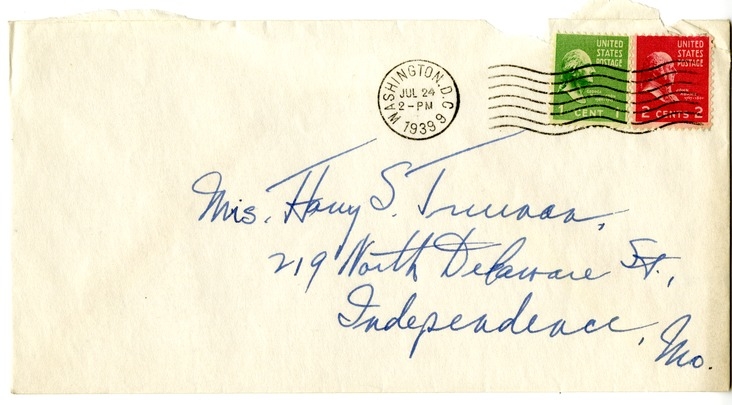 WASHINGTON, D.C.
JUL 24
2-PM
1939
9
UNITED
STATES
POSTAGE
1 CENT 1
UNITED
STATES
POSTAGE
2 CENTS 2
Mrs. Harry S. Truman,
219 North Delaware St.,
Independence, Mo.